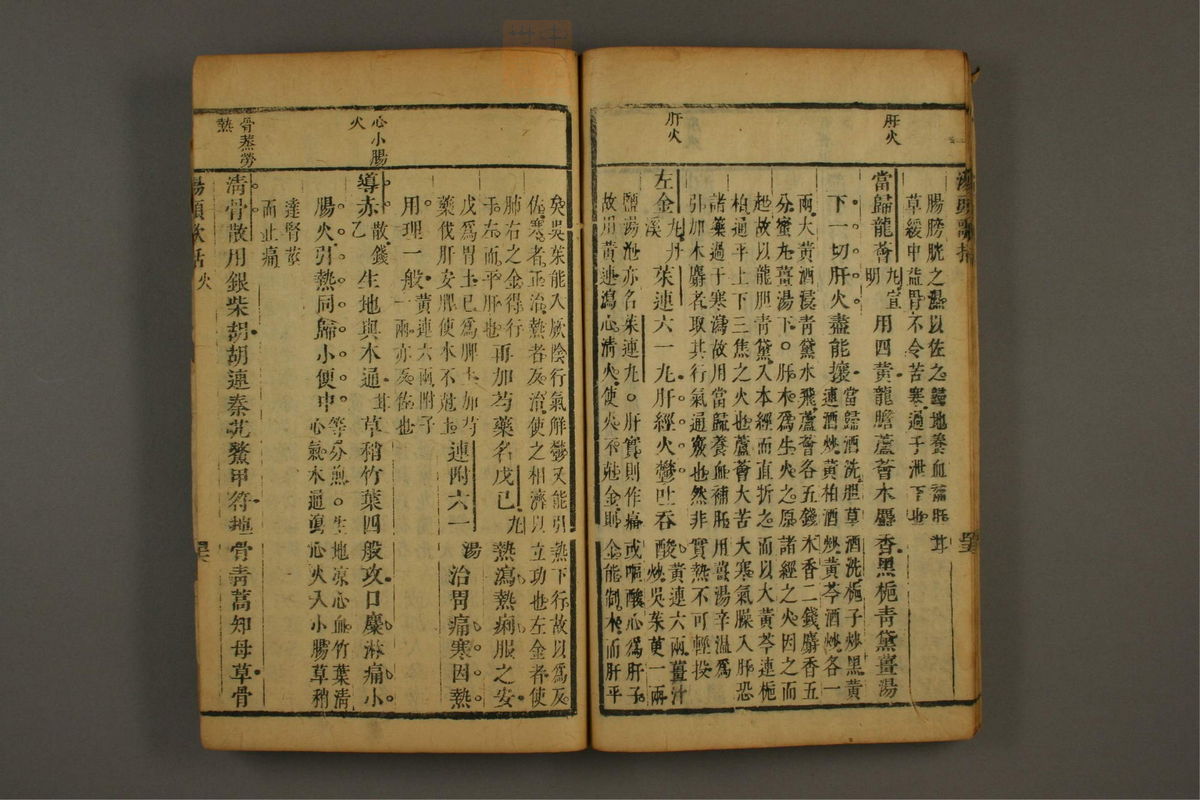 湯頭歌括
腸膀胱之濕以佐之歸地養血補肝甘
草緩中益胃不令苦寒過于泄下也
肝火
當歸龍薈丸宣明用四黃龍膽蘆薈木麝香黑梔青黛薑湯
下一切肝火盡能攘
當歸酒洗胆草酒洗梔子炒黑黃
連酒炒黃柏酒炒黃芩酒炒各一
兩大黃酒浸青黛水飛蘆薈各五錢木香二錢麝香五
分蜜丸薑湯下○肝木爲生火之原諸經之火因之而
起故以龍胆青黛入本經而直折之而以大黃芩連梔
柏通平上下三焦之火也蘆薈大苦大寒氣臊入肝恐
諸藥過于寒瀉故用當歸養血補肝用薑湯辛温爲
引加木麝者取其行氣通竅也然非實熱不可輕投
肝火
左金丸丹溪茱連六一丸肝經火鬱吐吞酸
黃連六兩薑汁
炒吳茱萸一兩
鹽湯泡亦名茱連丸○肝實則作痛或嘔酸心爲肝子
故用黃連瀉心清火使火不尅金則金能制木而肝平
矣吳茱能入厥陰行氣解鬱又能引熱下行故以爲反
佐寒者正治熱者反治使之相濟以立功也左金者使
肺右之金得行
于左而平肝也
再加芍藥名戊己丸熱瀉熱痢服之安
戊爲胃土己爲脾土加芍
藥伐肝安脾使木不尅土
連附六一湯治胃痛寒因熱
用理一般
黃連六兩附子
一兩亦反佐也
心小腸火
導赤散錢乙生地與木通甘草稍竹葉四般攻口糜淋痛小
腸火引熱同歸小便中
等分煎○生地凉心血竹葉清
心氣木通瀉心火入小腸草稍
達腎莖
而止痛
骨蒸勞熱
清骨散用銀柴胡胡連秦艽鱉甲符地骨青蒿知母草骨
湯頭歌括 火